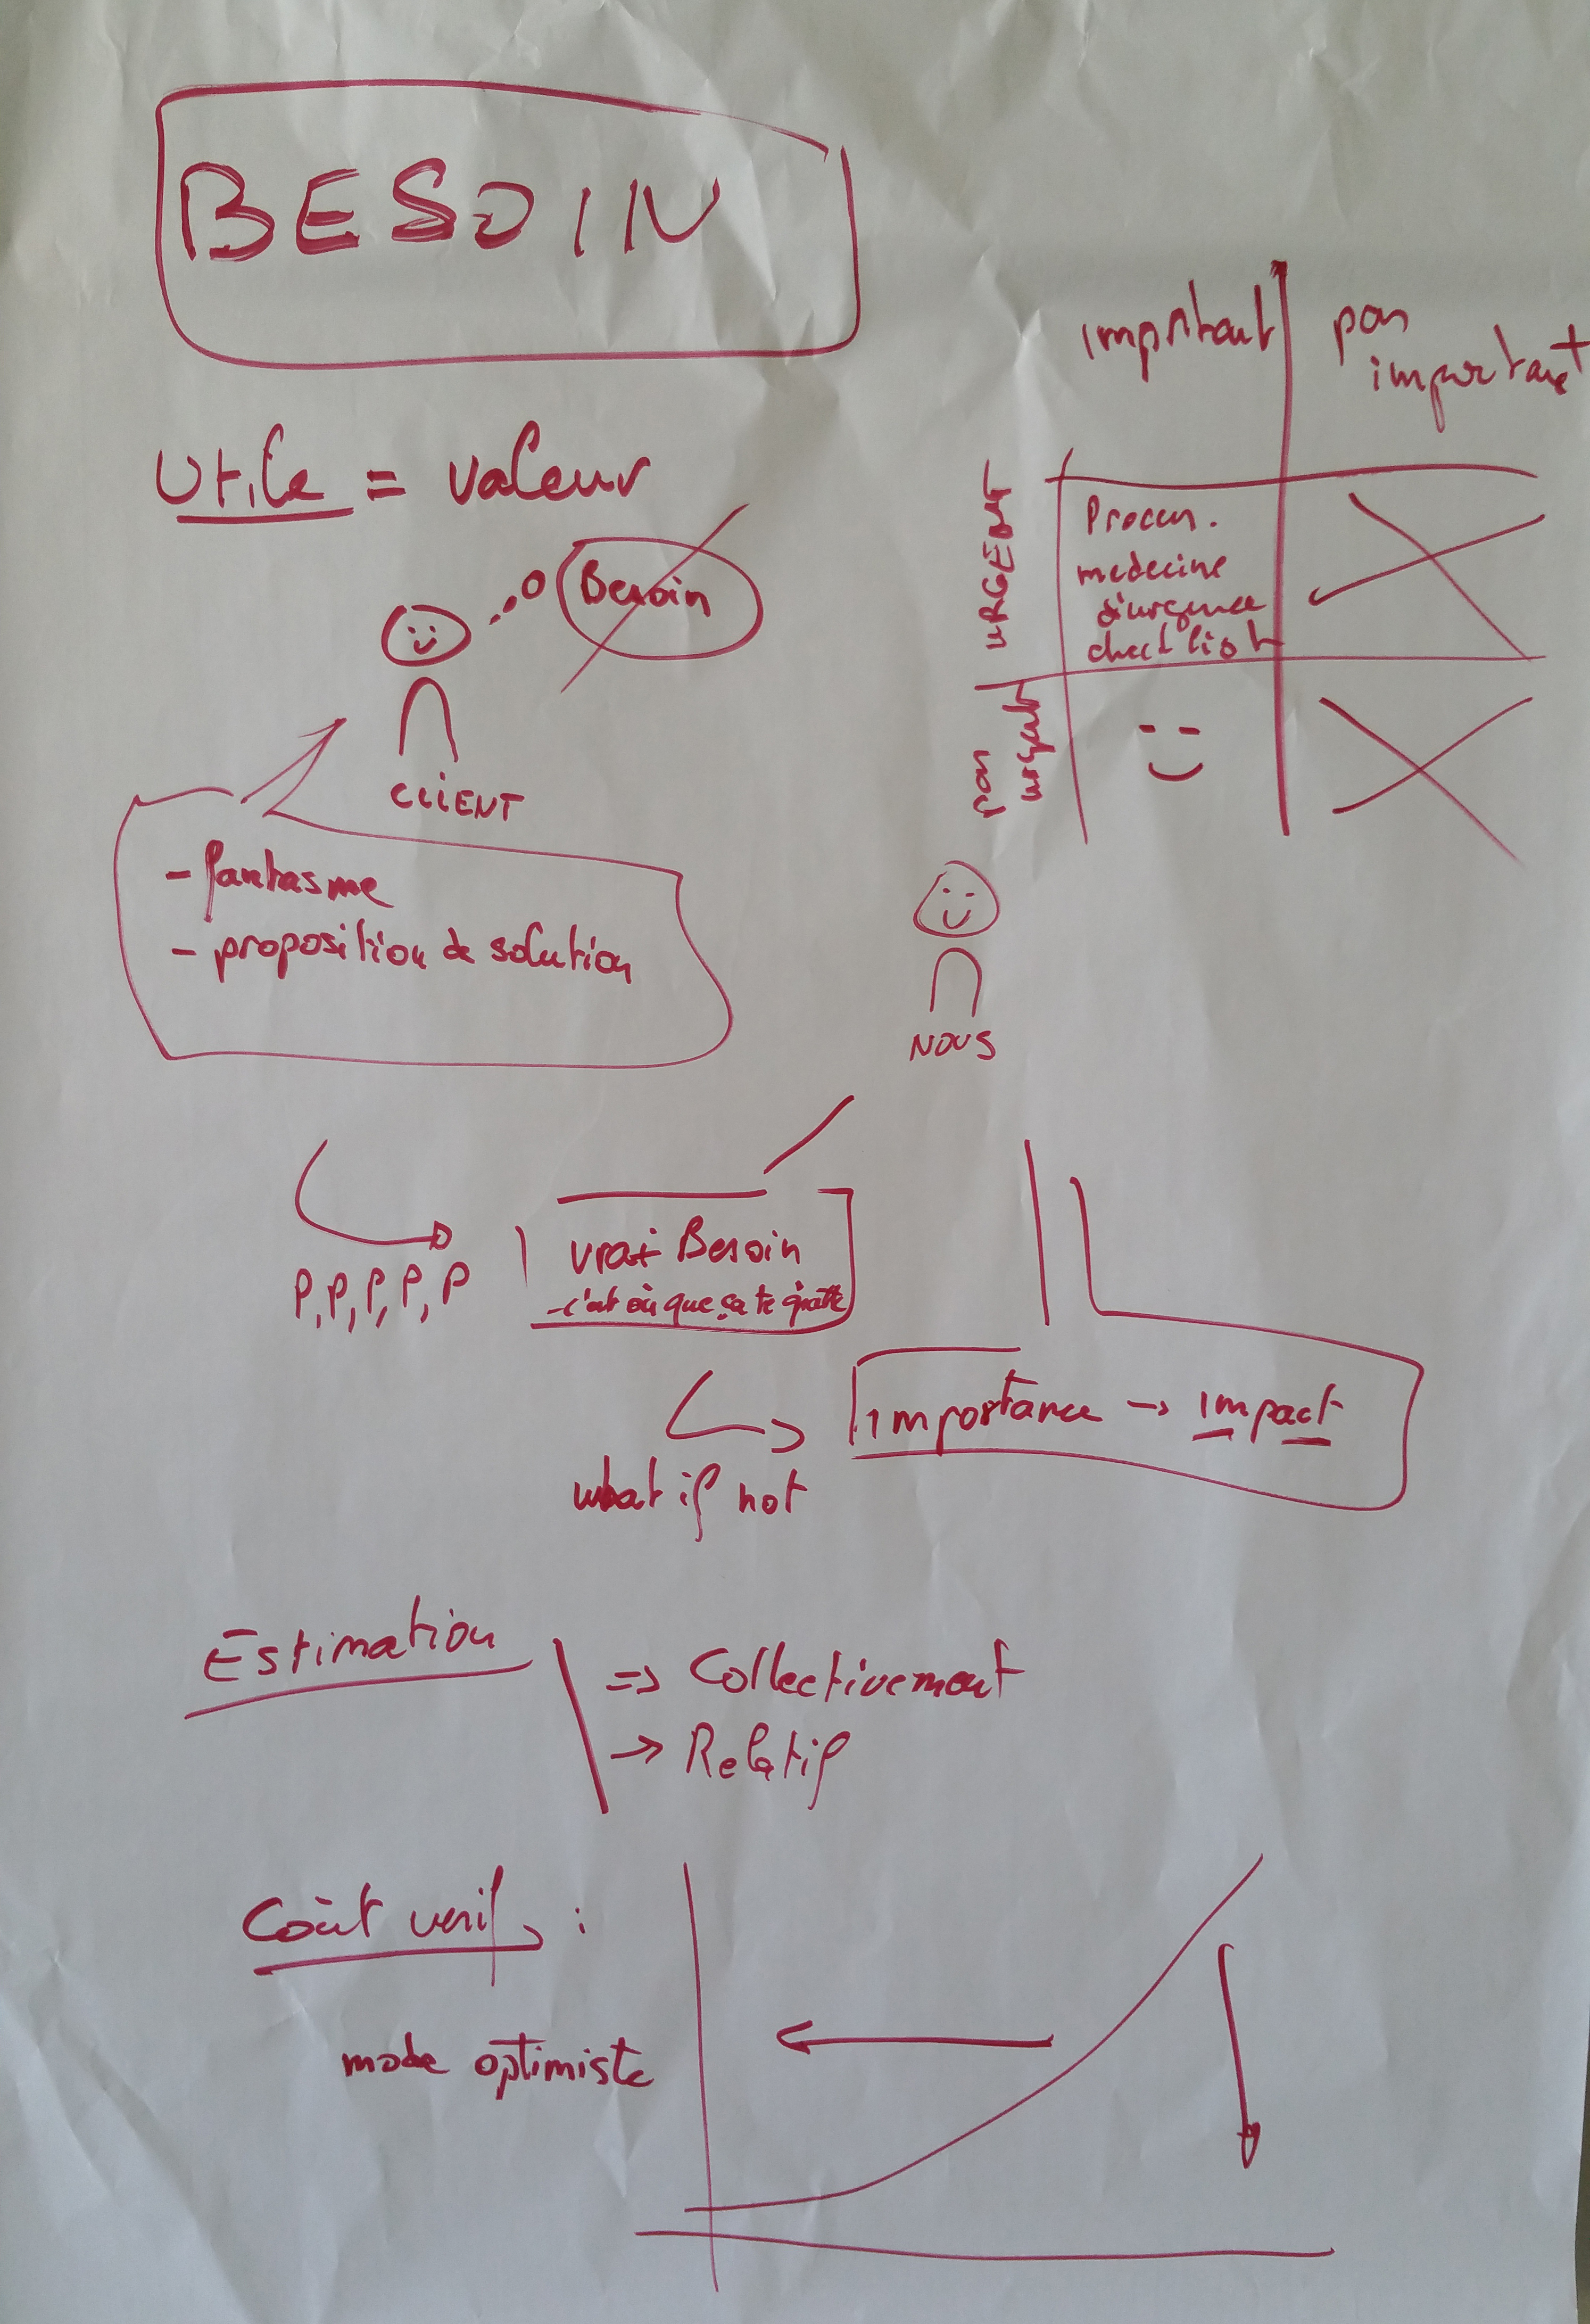 BESOIN
important
pas
important
Utile = valeur
URGENT
Process.
medecine
d'urgence
check list
Besoin
pas
urgent
CLIENT
- fantasme
- proposition de solution
NOUS
P, P, P, P, P
vrai Besoin
- c'est où que ça te gratte
importance → impact
what if not
Estimation
=> Collectivement
→ Relatif
Coût verif :
mode optimiste